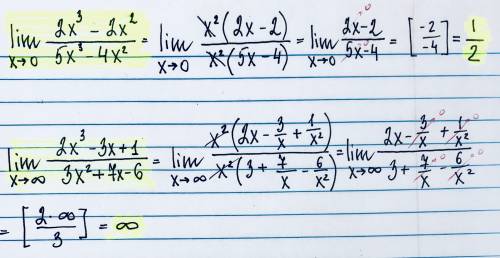 lim x→0 (2x³ - 2x²)/(5x³ - 4x²) = lim x→0 x²(2x - 2)/x²(5x - 4) = lim x→0 (2x - 2)/(5x - 4) = [-2/-4] = 1/2
lim x→∞ (2x³ - 3x + 1)/(3x² + 7x - 6) = lim x→∞ x²(2x - 3/x + 1/x²)/x²(3 + 7/x - 6/x²) = lim x→∞ (2x - 3/x + 1/x²)/(3 + 7/x - 6/x²)
= [2·∞/3] = ∞